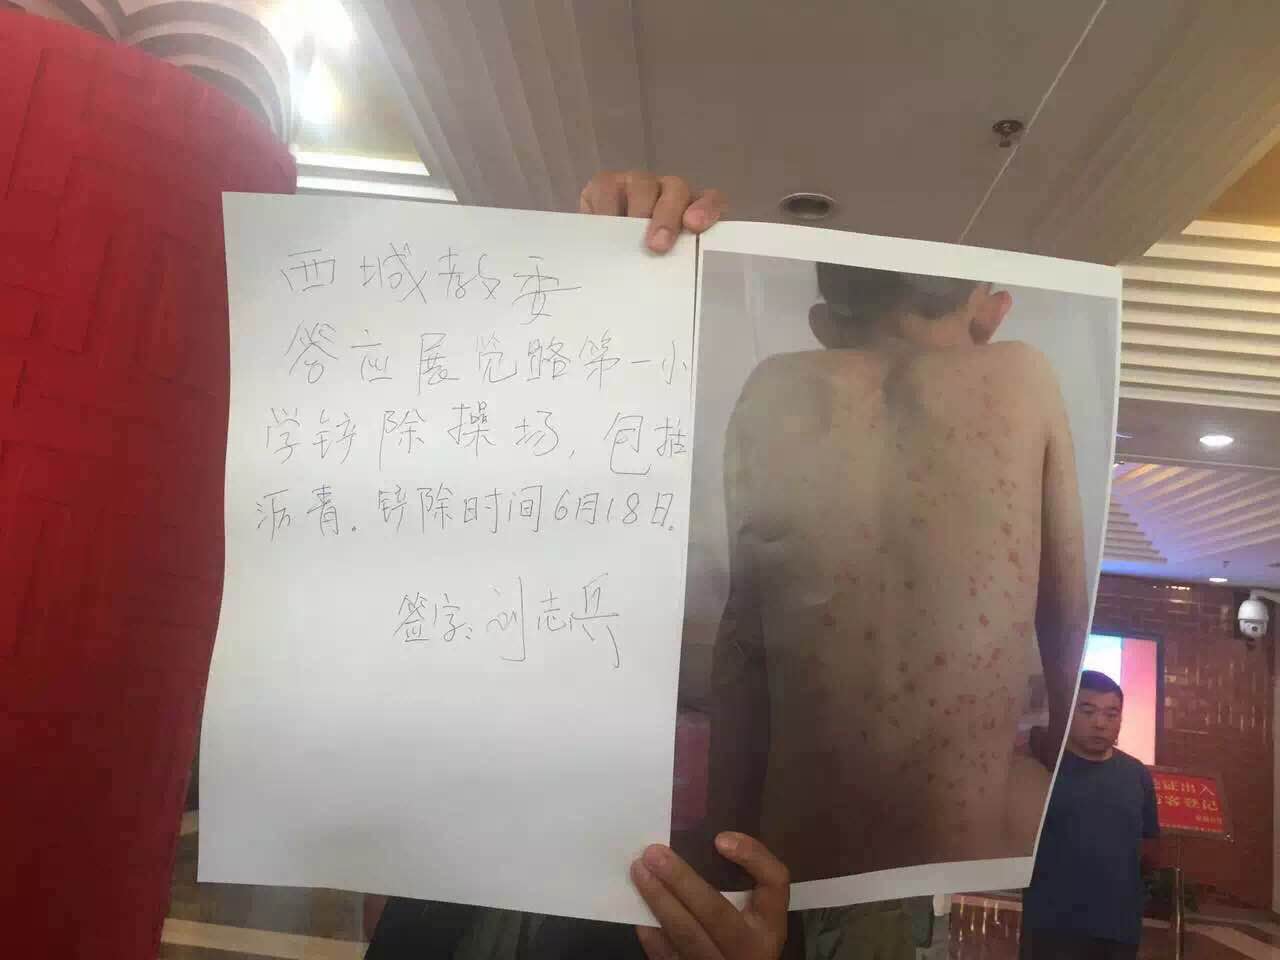 西城教委
答应展览路第一小
学铲除操场，包括
沥青。铲除时间6月18日。
签字：刘志兵
证出入
客登记